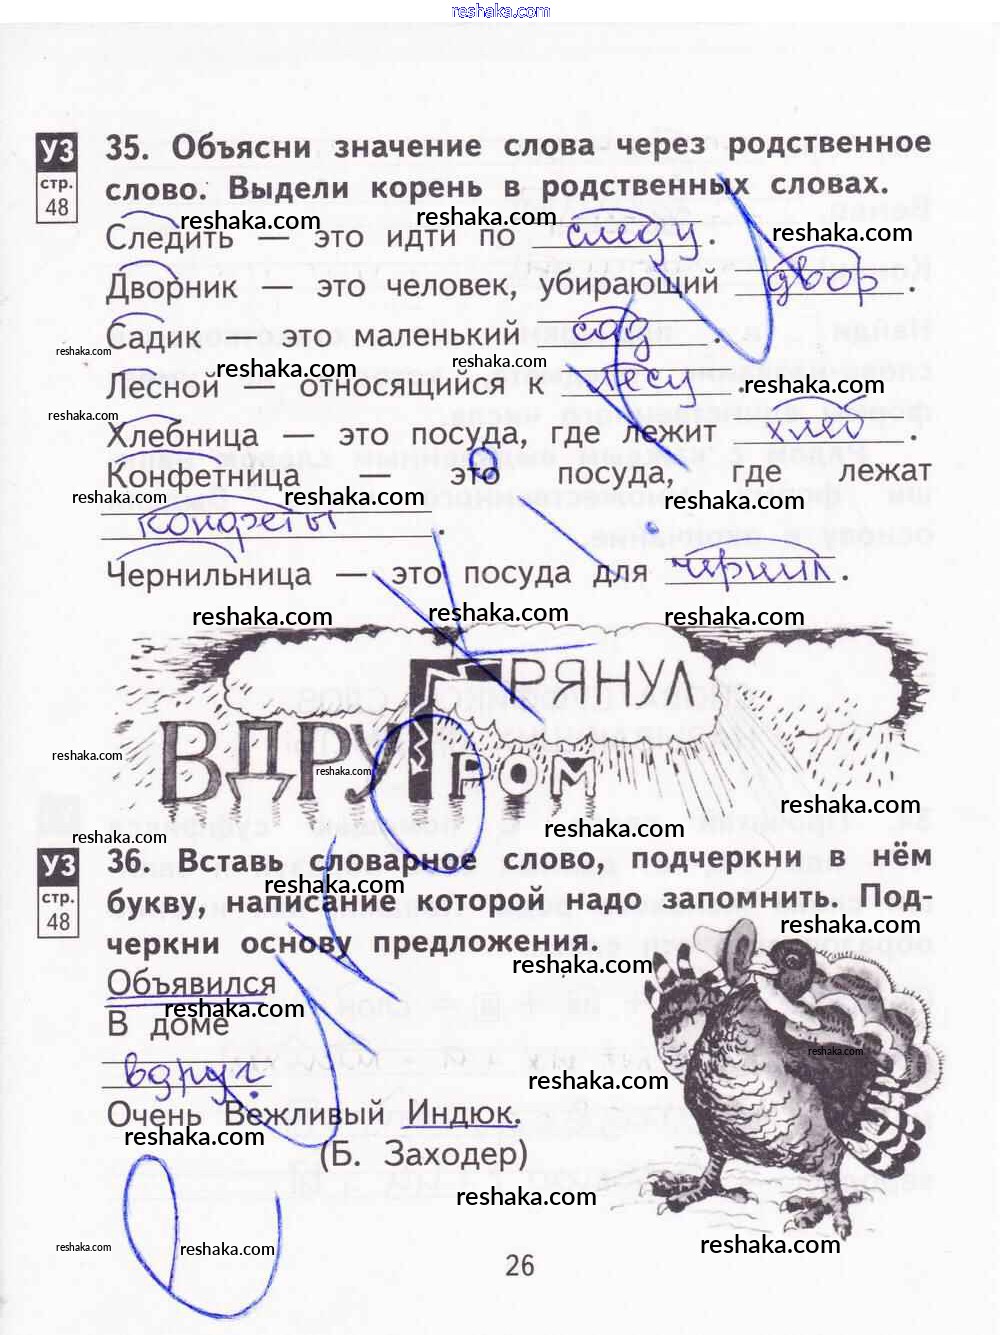 reshaka.com
УЗ
стр.
48
35. Объясни значение слова через родственное
слово. Выдели корень в родственных словах.
reshaka.com reshaka.com reshaka.com
Следить — это идти по следу.
Дворник — это человек, убирающий двор.
Садик — это маленький сад.
reshaka.com reshaka.com reshaka.com reshaka.com
Лесной — относящийся к лесу.
reshaka.com
Хлебница — это посуда, где лежит хлеб.
Конфетница — это посуда, где лежат
reshaka.com reshaka.com reshaka.com
конфеты.
Чернильница — это посуда для чернил.
reshaka.com reshaka.com reshaka.com
ГРЯНУЛ
ВДРУГ
ГРОМ
reshaka.com reshaka.com
reshaka.com
reshaka.com reshaka.com
УЗ
стр.
48
36. Вставь словарное слово, подчеркни в нём
reshaka.com
букву, написание которой надо запомнить. Под-
reshaka.com
черкни основу предложения.
reshaka.com
Объявился
reshaka.com
В доме
reshaka.com
вдруг
reshaka.com
Очень Вежливый Индюк.
reshaka.com
(Б. Заходер)
reshaka.com reshaka.com
reshaka.com reshaka.com reshaka.com
26